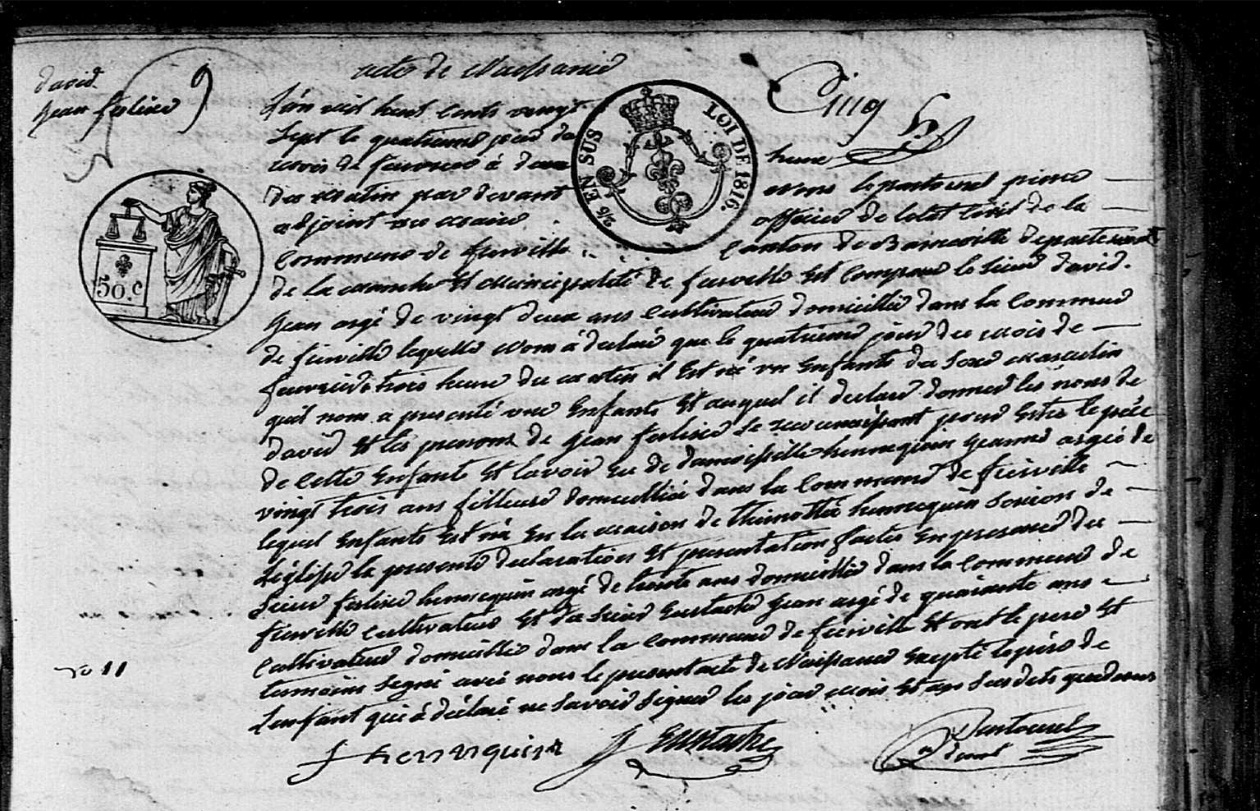 Cinq
acte de Naissance
david
jean felise
L'an mil huit cents vingt
sept le quatrieme jour du
mois de fevrier à deux heure
du matin par devant nous lepastourel pierre
adjoint au maire officier de letat Civil de la
Commune de fierville Canton de Barneville departement
de la manche et Municipalité de fierville Est Comparu le Sieur david
jean agé de vingt deux ans Cultivateur domicillié dans la Commune
de fierville lequelle nous à declaré que le quatrieme jour du mois de
à trois heure du matin il Est né un Enfante du Sexe masculin
quil nous a presenté une Enfante Et auquel il declare donner les noms de
david Et les prenoms de jean felise Se reconnoissant pour Estre le père
de Cette Enfante Et lavoir Eu de damoiselle hennequin jeanne agée de
vingt trois ans filleuse domicilliée dans la Commune de fierville
lequel Enfante Est né En la maison de thimothée hennequin
la presente declaration Et presentation faites En presence du
Sieur felise hennequin agé de trente ans domicillié dans la Commune de
fierville Cultivateur Et du Sieur Eustache jean agé de quarante ans
Cultivateur domicillié dans la Commune de fierville Et ont le pere Et
temoins Signé avec nous le present acte de Naissance Excepté le père de
Lenfant qui à déclaré ne Savoir Signer les jour mois Et an
No 11
f hennequin J Eustache
EN SUS
LOI DE 1816.
50.c